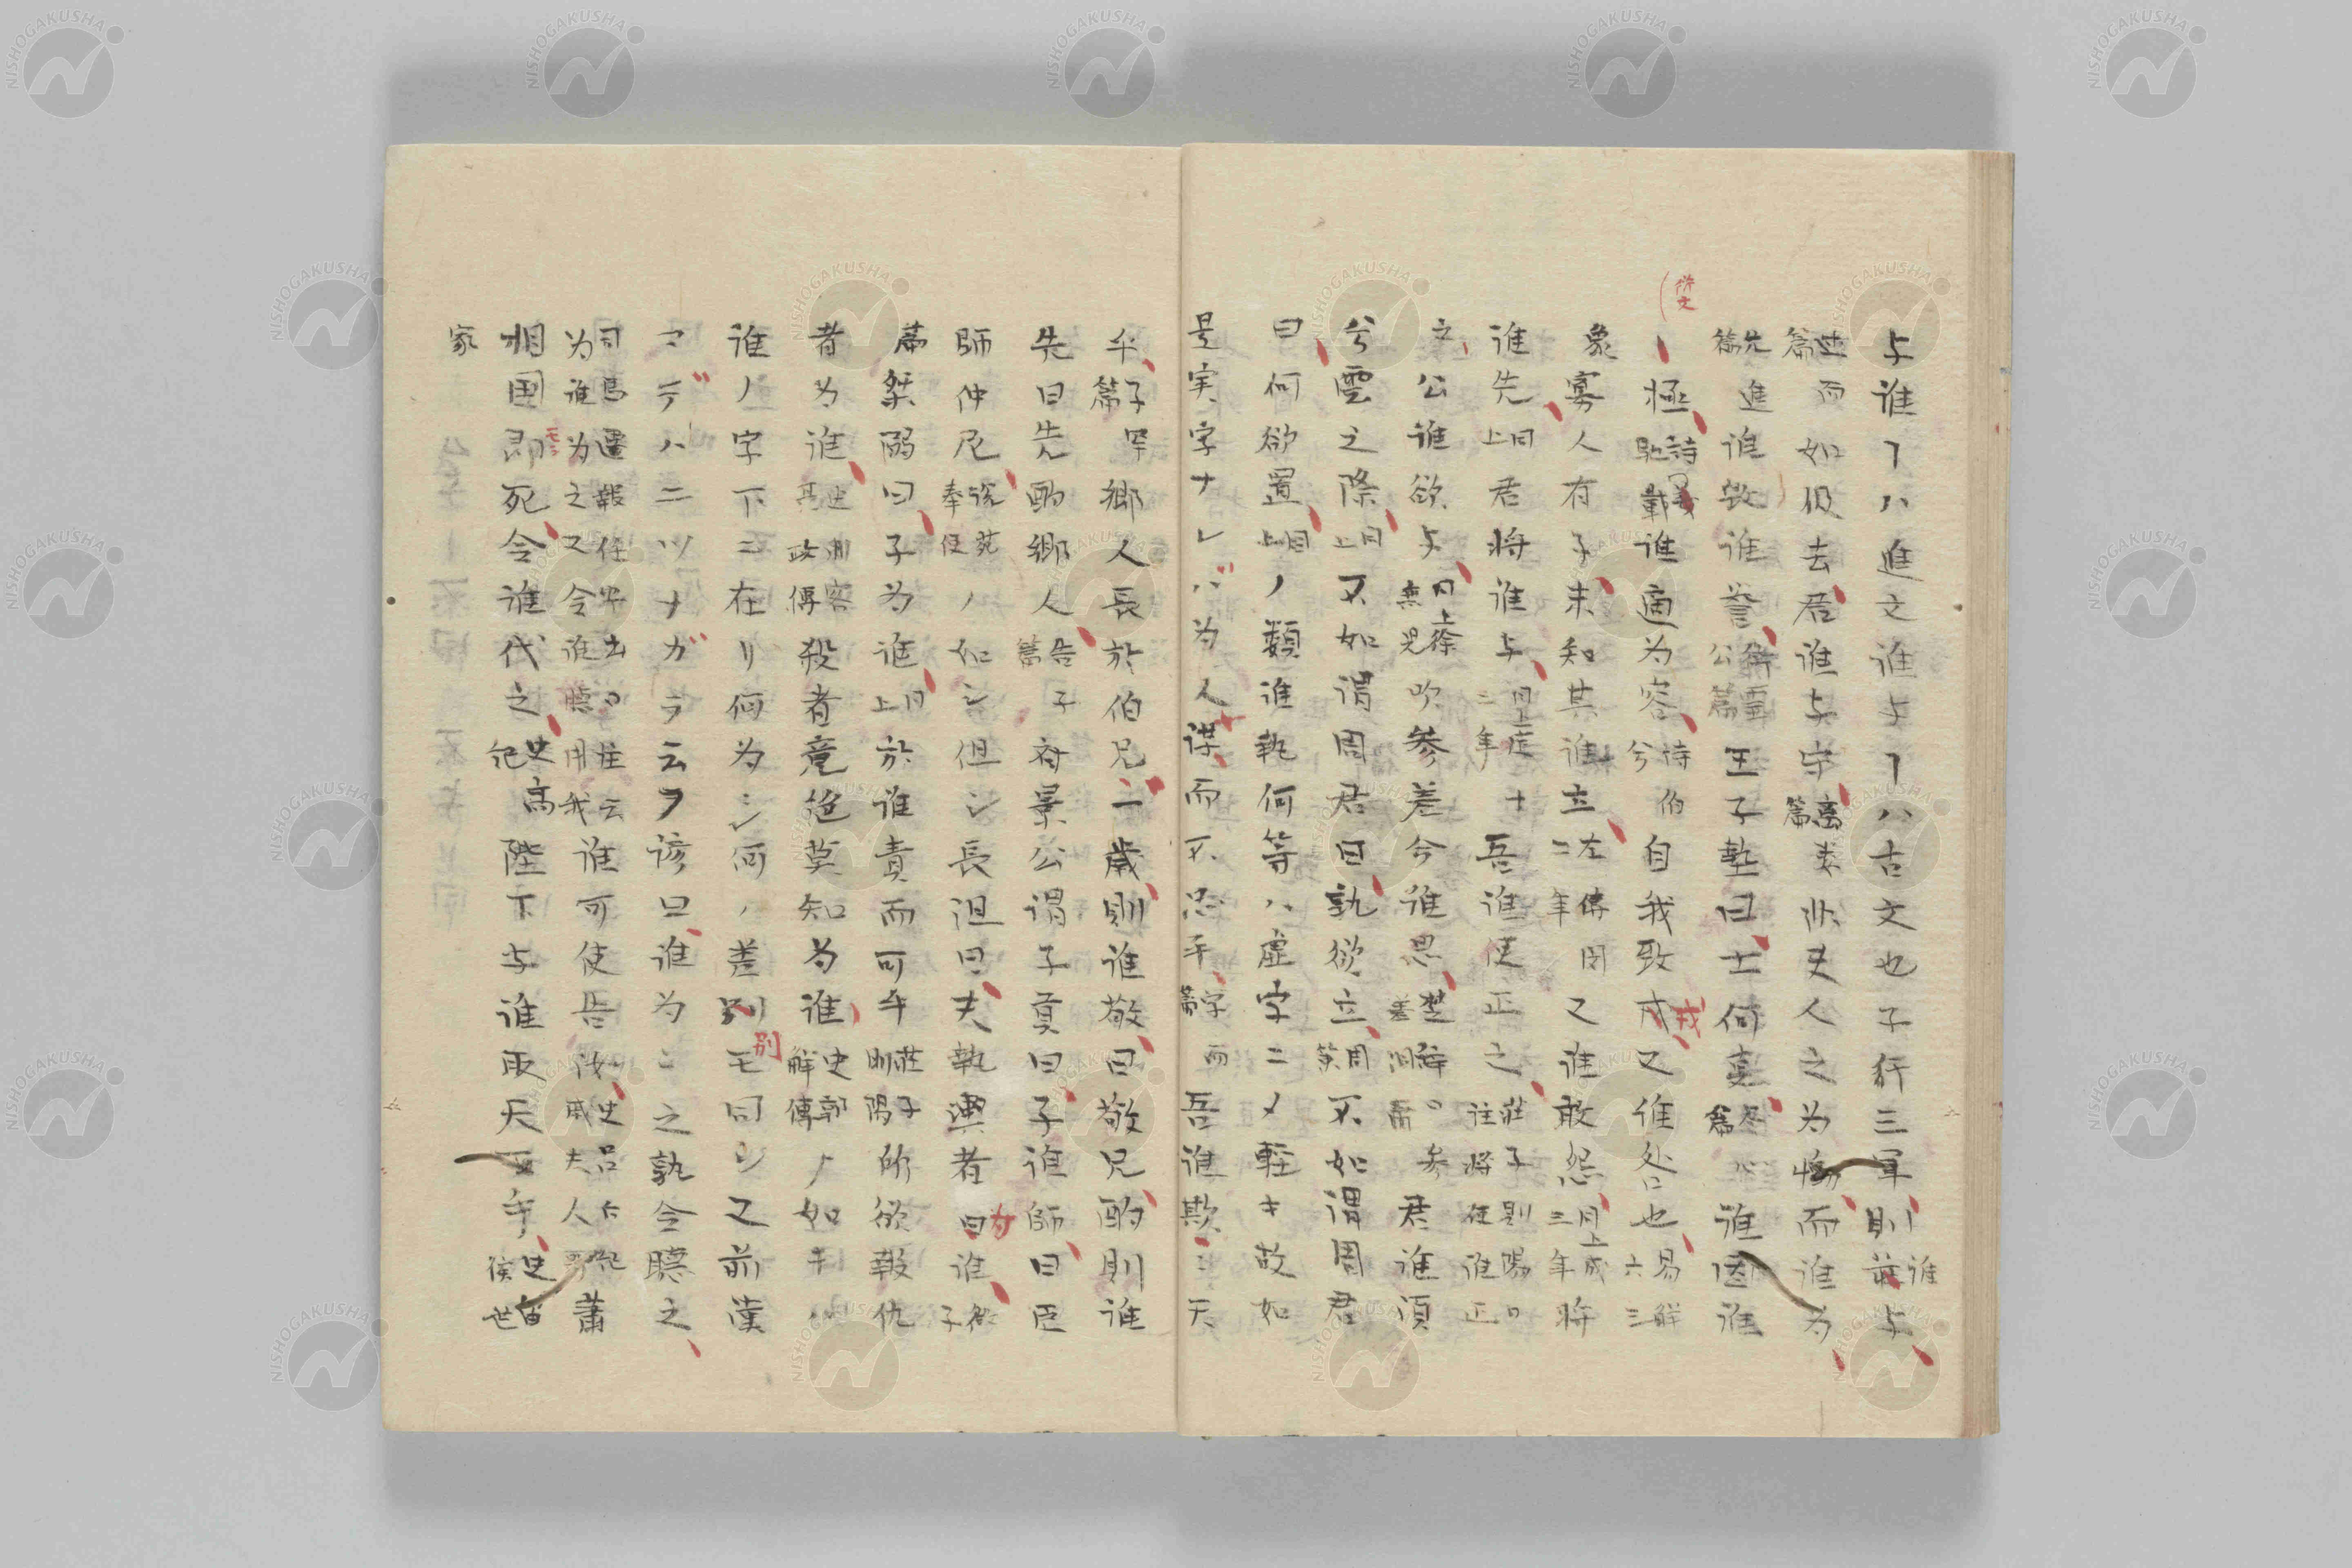 与誰ヿハ進之誰与ヿハ古文也子行三軍則誰与
述而篇如伋去君誰与守離婁篇非夫人之為慟而誰為
先進篇誰毀誰譽衛靈公篇王子墊曰士何事盡心篇誰因誰
極詩載馳誰適為容詩伯兮自我致戎又誰咎也易解六三
象寡人有子未知其誰立左傳閔二年又誰敢怨同上成三年將
誰先同上君將誰与同上 吾誰使正之莊子則陽注將任誰正
之公誰欲与同上徐無鬼吹參差今誰思楚辞 君誰須
兮雲之際同上不如謂周君曰孰欲立周策不如謂周君
曰何欲置同上ノ類誰孰何等ハ虚字ニメ軽キ故如
是実字ナレバ為人謀而不忠乎学而篇吾誰欺欺天
乎子罕篇鄉人長於伯兄一歲則誰敬曰敬兄酌則誰
先曰先酌鄉人告子篇斉景公謂子貢曰子誰師曰臣
師仲尼説苑奉使ノ如シ但シ長沮曰夫執輿者為誰微子
篇桀溺曰子為誰同上於誰責而可乎莊子則陽所欲報仇
者為誰史刺客傳殺者竟絕莫知為誰史郭解傳ノ如キハ
誰ノ字下ニ在リ何為ニシ何ノ差別モ同シ又前漢
諺曰誰為為之孰令聽之
司馬遷報任安書曰 注云為誰為之又令誰聽用我誰可使告汝史呂后紀戚夫人歌蕭
相国即死令誰代之史高紀陛下与誰取天下乎史留侯世
家
NISHOGAKUSHA